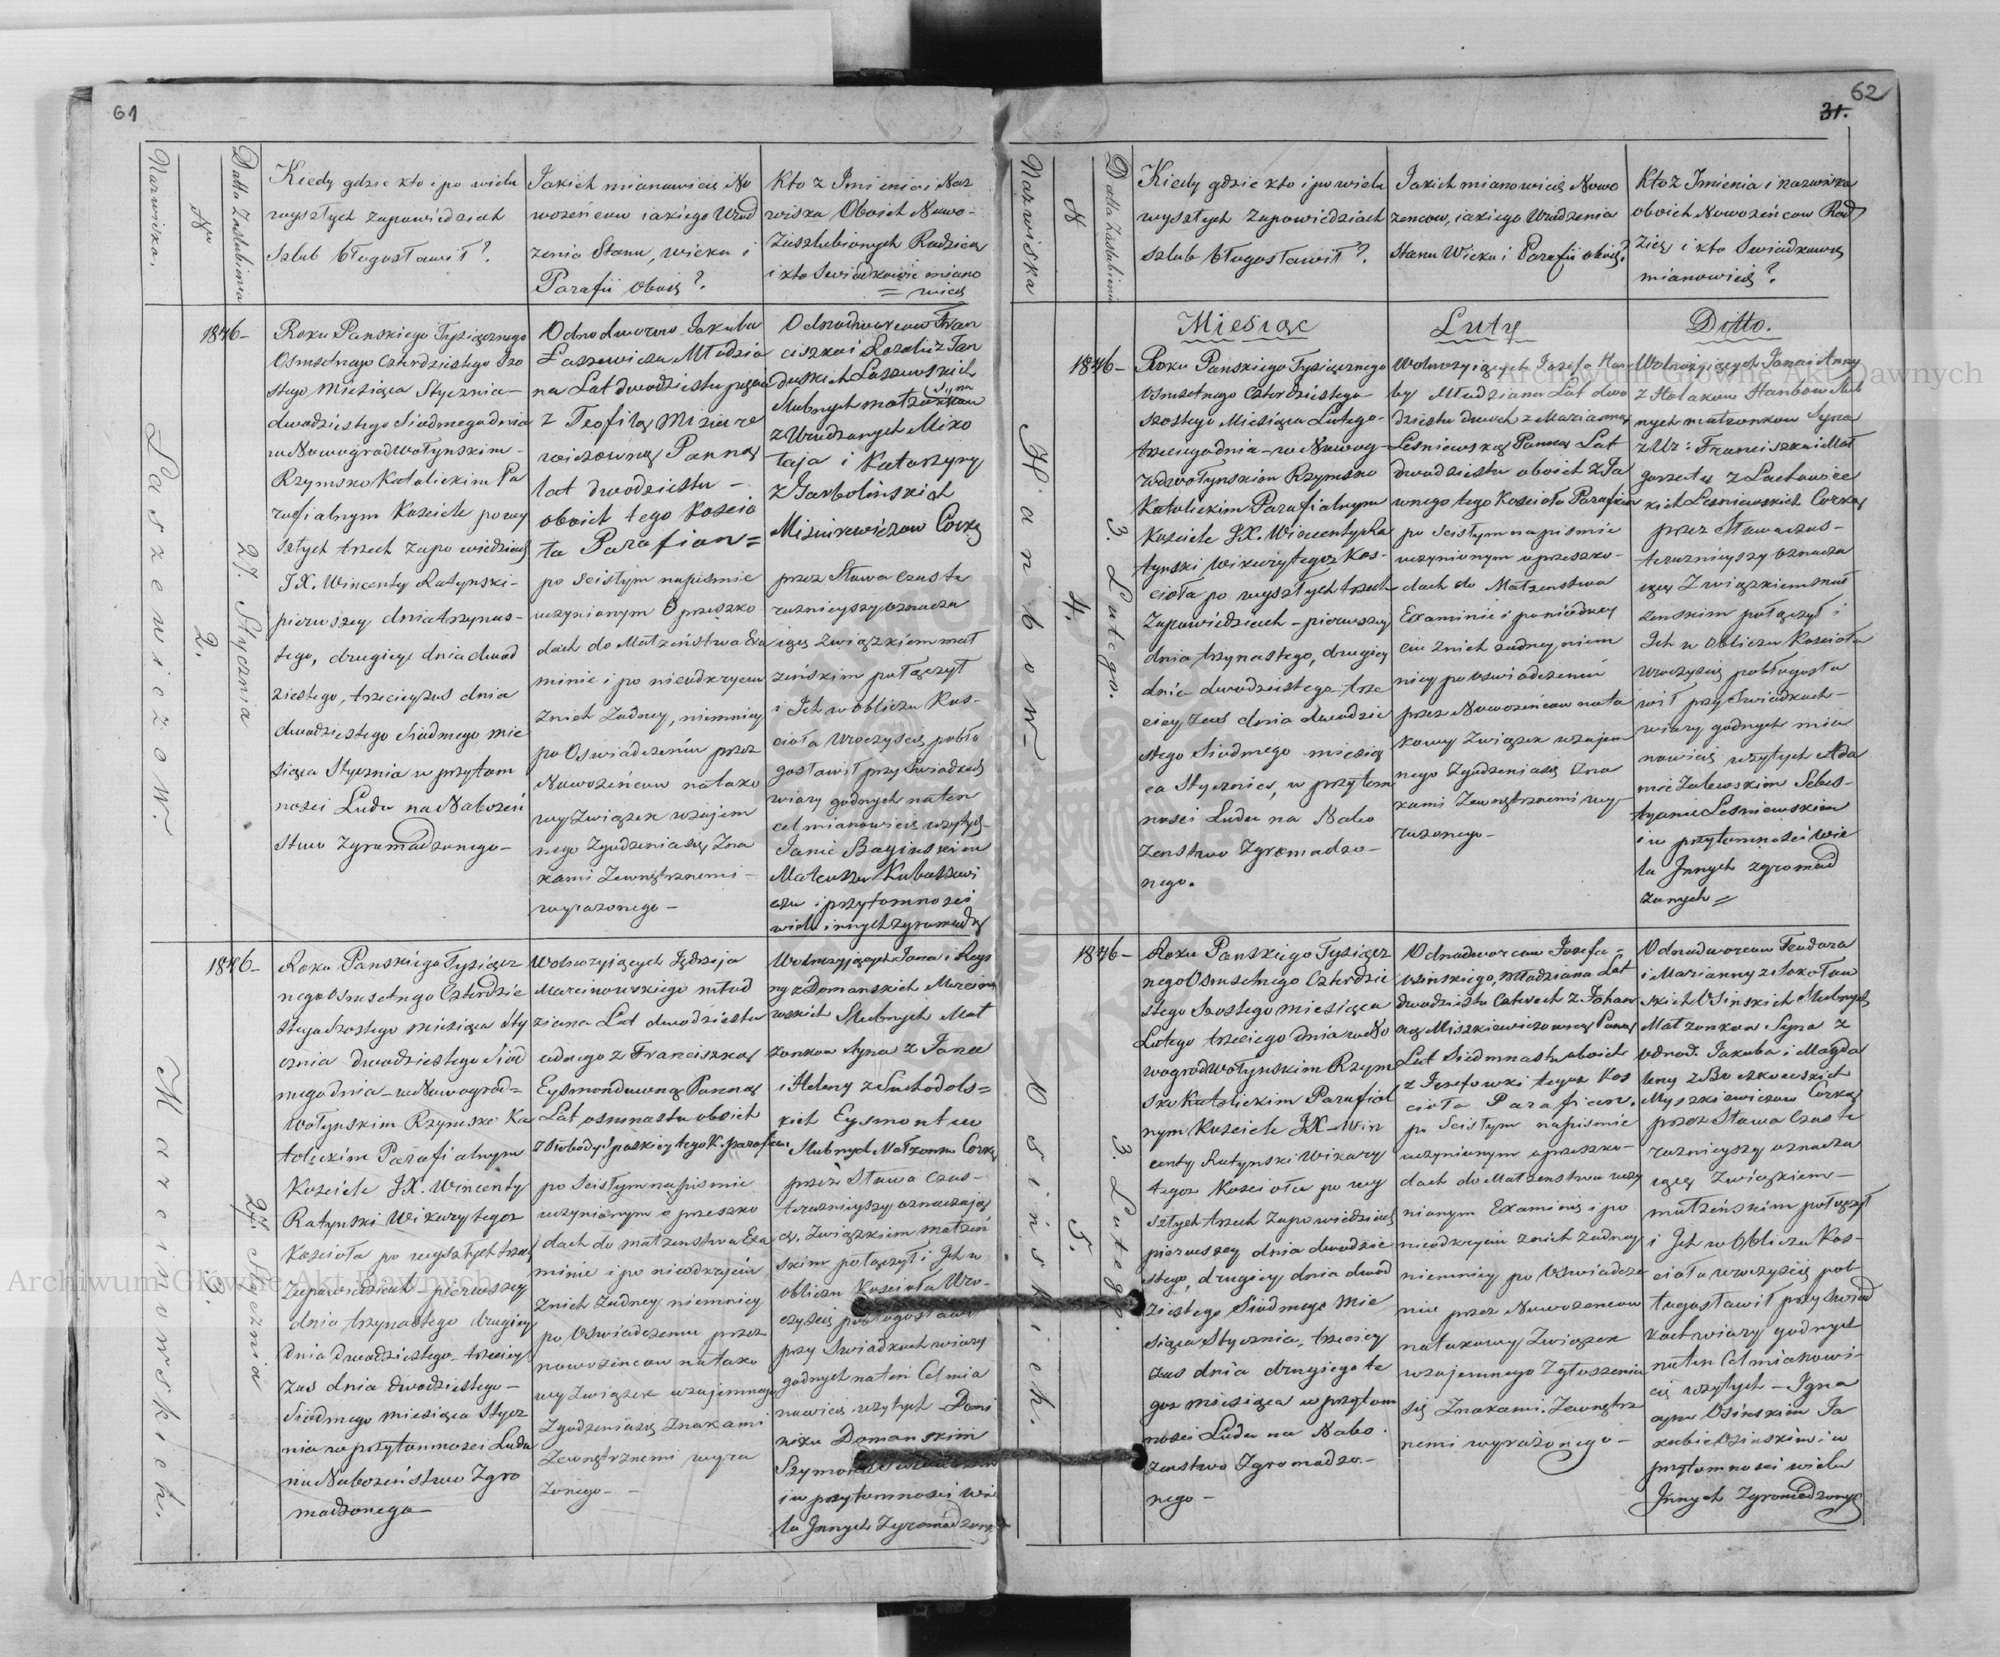 61
Nazwiska.
Nru
Datta Zaslubienia
Kiedy gdzie kto i po wielu
wyszłych zapowiedziach
szlub błogosławił?
Jakich mianowicie No
wożeńcow iakiego Urod
zenia Stanu, wieku i
Parafii oboie?
Kto z Imienia i Naz
wiska Oboich Nowo-
Zaszlubionych Rodzice
i kto Swiadkowie miano
= wicie
Łaszewiczow.
2.
27. Stycznia
1846-
Roku Panskiego Tysiącznego
Osmsetnego Czterdziestego Szo
stego Miesiąca Stycznia-
dwudziestego Siódmego dnia
w Nowogradwołynskim-
Rzymsko Katolickim Pa
rafialnym Kosciele po wy
szłych trzech zapowiedziach
J.X. Wincenty Ratynski-
pierwszey dnia trzynas-
tego, drugiey dnia dwud
ziestego, trzeciey zas dnia
dwudziestego Siódmego mie
siąca Stycznia w przytom
nosci Ludu na Nabożeń
stwo zgromadzonego-
Odnodworca Jakuba
Łaszewicza Młodzia
na Lat dwudziestu
z Teofilą Misiure
wiczowną Panną
lat dwudziestu -
oboich tego Koscio
ła Parafian =
po scisłym napismie
uczynionym o przeszko
dach do Małżeństwa Exa
minie i po nieodkryciu
znich żadney, niemniey
po Oswiadczeniu przez
Nowożeńcow natako
wy Związek wzajem
nego Zgodzenia się Zna
kami Zewnętrznemi-
wyrażonego-
Odnodworcow Fran
ciszka i Rozalii z Jan
duskich Łaszewskich
Slubnych małżonkow Syna
z Urodzonych Miko
łaja i Katarzyny
z Garbolińskich
Misiurewiczow Corkę
przez Słowa czas te
razniejszy oznacza
iące Związkiem mał
żeńskim połączył
i Ich w Obliczu Kos-
cioła Uroczyscie pobło
gosławił przy Swiadkach
wiary godnych na ten
cel mianowicie wzytych-
Janie Baginskim
Mateuszu Kubaszewi
czu i przytomnosci
wielu innych zgromadzo
Marcinowskich.
3.
27. Stycznia
1846-
Roku Panskiego Tysiącz
nego Osmsetnego Czterdzie
stego Szostego miesiąca Sty
cznia dwudziestego Siód
mego dnia-w Nowograd=
Wołynskim Rzymsko Ka
tolickim Parafialnym
Kosciele J.X. Wincenty
Ratynski Wikary tegoz
Koscioła po wyszłych trzech
Zapowiedziach pierwszey
dnia trzynastego drugiey
dnia dwudziestego-trzeciey
zas dnia dwudziestego-
Siódmego miesiąca Stycz
nia w przytomnosci Ludu
na Nabożeństwo Zgro
madzonego-
Wolnożyjących Jędrzeja
Marcinowskiego młod
ziana Lat dwudziestu
iednego z Franciszką
Eysmondowną Panną
Lat osmnastu oboich
po scisłym napismie
uczynionym o przeszko
dach do małżenstwa Exa
minie i po nieodkryciu
znich żadney niemniey
po Oswiadczeniu przez
nowożencow natako
wy Związek wzajemnego
Zgodzenia się Znakami
Zewnętrznemi wyra
żonego--
Wolnożyjących Jana i Regi
ny z Domanskich Marcino
wskich Slubnych Mał
żonkow Syna z Jana
i Heleny z Suchodols=
kich Eysmontow
Slubnych Małżonkow Corkę
przez Słowa Czas-
terazniejszy oznaczają
ce, Związkiem małżeń
skim połączył i Ich w
obliczu Koscioła Uro-
czyscie pobłogosławił
przy Swiadkach wiary
godnych na ten Cel mia
nowicie wzytych-Domi
niku Domanskim
Szymonie
i w przytomnosci wie
lu Innych Zgromadzonych
62
31.
Nazwiska
N
Datta Zaslubienia
Kiedy gdzie kto i po wielu
wyszłych zapowiedziach
szlub błogosławił?
Jakich mianowicie Nowo
zencow, iakiego Urodzenia
Stanu Wieku i Parafii oboie?
Kto z Imienia i nazwiska
oboich Nowożeńcow Rod
zice i kto Swiadkowie
mianowicie?
Miesiąc
Luty
Ditto.
Hanibow-
4.
3. Lutego.
1846-
Roku Panskiego Tysiącznego
Osmsetnego Czterdziestego
szostego Miesiąca Lutego-
trzeciego dnia-w Nowog-
radwołynskim Rzymsko
Katolickim Parafialnym
Kosciele J.X. Wincenty Ra
tynski Wikary tegoz Kos-
cioła po wyszłych trzech
Zapowiedziach-pierwszey
dnia trzynastego, drugiey
dnia dwudziestego-trze
ciey zas dnia dwudzie
stego Siodmego miesią
ca Stycznia, w przytom
nosci Ludu na Nabo
żenstwo Zgromadzo-
nego.
Wolnożyiących Jozefa Han
by Młodziana Lat dwu
dziestu dwoch z Marianną
Lesniewską Panną Lat
dwudziestu oboich z Ja
wnego tego Koscioła Parafian
po scisłym napismie
uczynionym o przeszko-
dach do Małżenstwa
Examinie i
ciu znich żadney, niem
niey po oswiadczeniu
przez Nowożeńcow nata
kowy Związek wzajem
nego Zgodzenia się Zna
kami Zewnętrznemi wy-
rażonego-
Wolnożyjących Jana i Anny
z Polakow Hanbow Slub
nych małżonkow Syna
z Ur: Franciszka i Mał
gorzaty z Lachowiec
kich Lesniewskich Corkę
przez Słowa czas-
terazniejszy oznacza
iące Związkiem mał
żenskim połączył i
Ich w Obliczu Koscioła
Uroczyscie pobłogosła
wił przy Swiadkach-
wiary godnych mia
nowicie wzytych Ada
mie Zalewskim Sebas-
tyanie Lesniewskim
i w przytomnosci wie
lu Innych zgromad
zonych=
Osińskich.
5.
3. Lutego.
1846-
Roku Panskiego Tysiącz
nego Osmsetnego Czterdzie
stego Szostego miesiąca
Lutego trzeciego dnia w No
wogradwołynskim Rzym
sko Katolickim Parafial
nym Kosciele J.X-Win
centy Ratynski Wikary
tegoz Koscioła po wy
szłych trzech Zapowiedziach
pierwszey dnia dwudzie
stego, drugiey dnia dwud
ziestego Siódmego Mie
siąca Stycznia, trzeciey
zas dnia drugiego te
goz miesiąca w przytom
nosci Ludu na Nabo
zenstwo Zgromadzo-
nego-
Odnodworcow Jozefa-
Osinskiego, Młodziana Lat
dwudziestu Czterech z Johan
ną Miszkiewiczowną Panną
Lat Siedmnastu oboich
z Jozefowki tegoz Kos
cioła Parafian.
po Scisłym napismie
uczynionym o przeszko-
dach do Małżenstwa uczy
nionym Examinie i po
nieodkryciu znich żadney
niemniey po Oswiadcze
niu przez Nowożencow
natakowy Związek
wzajemnego Zgłoszenia
się Znakami Zewnętrz
nemi wyrażonego-
Odnodworcow Teodora
i Marianny z Sokołow
skich Osinskich Slubnych
Małżonkow Syna z
Odnod. Jakuba i Magda
leny z Buczkowskich
Myszkiewiczow Corkę
przez Słowa Czas te
razniejszy oznacza
iące Związkiem-
małżeńskim połączył
i Ich w Obliczu Kos-
cioła uroczyscie pob-
łogosławił przy Swiad
kach wiary godnych
na ten Cel mianowi-
cie wzytych-Igna
cym Osińskim Ja
kubie Osinskim i w
przytomnosci wielu
Innych Zgromadzonych
Archiwum Główne Akt Dawnych
Archiwum Główne Akt Dawnych